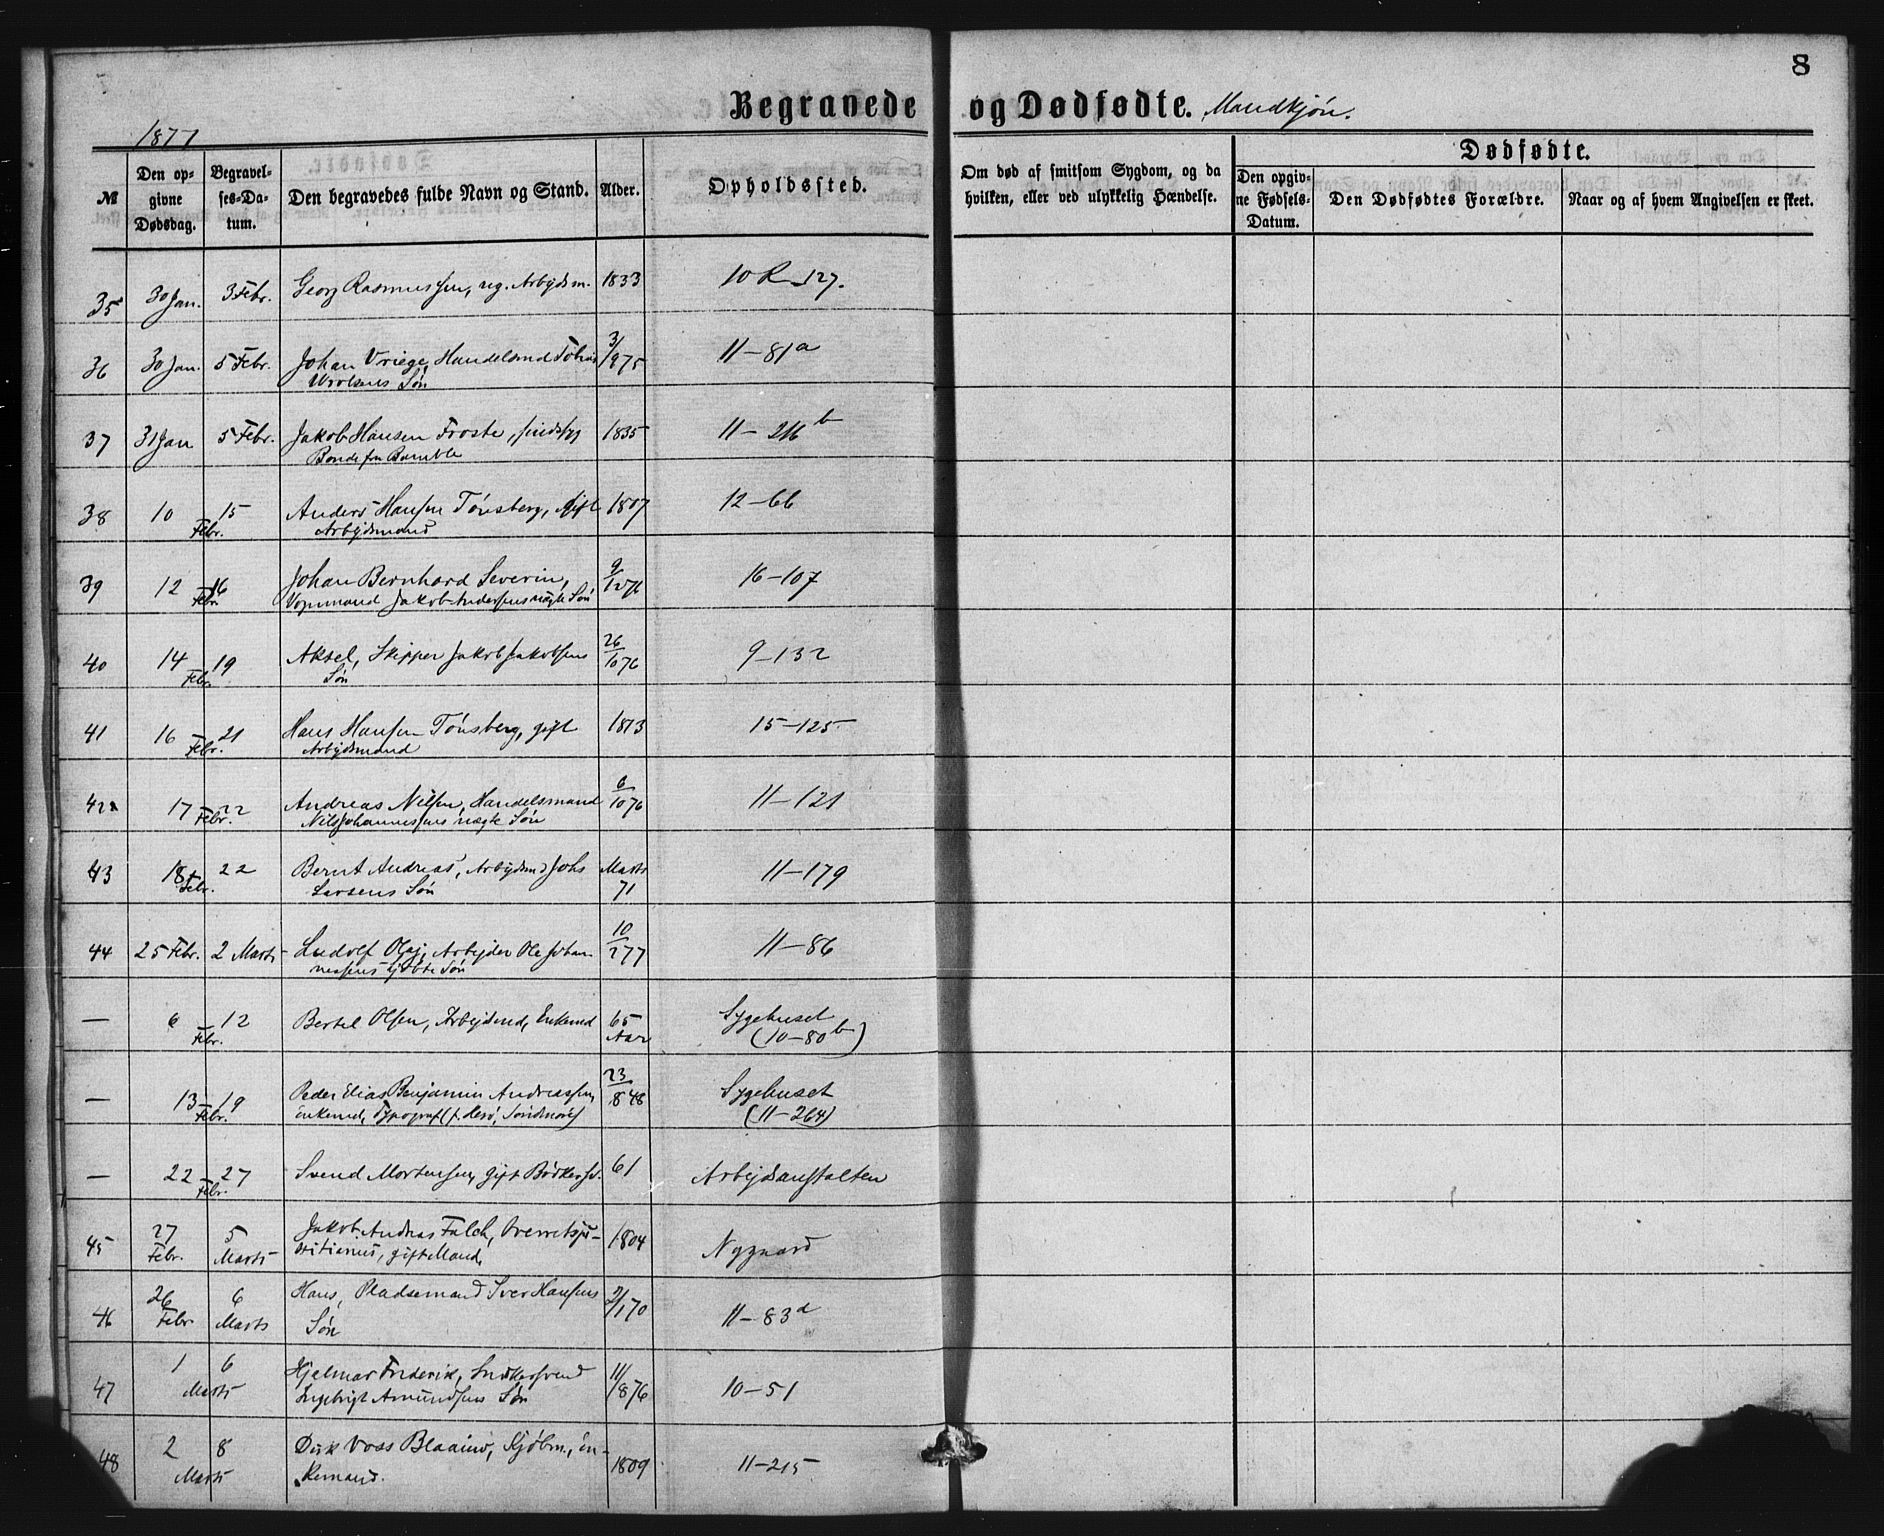 8
Begravede og Dødfødte. Mandkjøn.
1877
№ Den opgivne Dødsdag. Begravelses-Datum. Den begravedes fulde Navn og Stand. Alder. Opholdssted. Om død af smitsom Sygdom, og da hvilken, eller ved ulykkelig Hændelse. Dødfødte. Den opgivne Fødsels-Datum. Den Dødfødtes Forældre. Naar og af hvem Angivelsen er skeet.
35 30 Jan. 3 Febr. Georg Rasmussen, ug. Arbejdsm. 1833 10 R 127.
36 30 Jan. 5 Febr. Johan Vriege, Handelsmd Tobias 3/975 11-81a
Søn
37 31 Jan 5 Febr. Jakob Hansen Froste, 1835 11-216b
Bonde fra Bamble
38 10 15 Anders Hansen Tønsberg, gift 1807 12-66
Febr. Arbejdsmand
39 12 16 Johan Bernhard Severin, 9/1276 16-107
Febr. Vognmand Jakob Andersens ægte Søn
40 14 19 Aksel, Skipper Jakob Jakobsens 26/1076 9-132
Febr. Søn
41 16 21 Hans Hansen Tønsberg, gift 1813 15-125
Febr. Arbejdsmand
42 17 22 Andreas Nilsen, Handelsmand 6/1076 11-121
Febr. Nils Johannessens uægte Søn
43 18 22 Bernt Andreas, Arbejdsmd Johs Marts 71 11-179
Febr. Larsens Søn
44 25 Febr. 2 Marts Ludolf Olaj, Arbejder Ole Johan- 10/277 11-86
nessens Søn
— 6 12 Bertel Olsen, Arbejdsmd, Enkemd 65 Aar Sygehuset
Febr. (10-80b)
— 13 19 Peder Elias Benjamin Andreassen, 23/848 Sygehuset
Febr. Enkemd, Typograf (f. Herø, Søndmøre) (11-264)
— 22 27 Svend Mortensen, gift Bødkersv. 61 Arbejdsanstalten
Febr.
45 27 Febr. 5 Marts Jakob Andreas Falch, Overretsju- 1804 Nygaard
stitiarius, gift Mand,
46 26 Febr 6 Marts Hans, Pladsemand Iver Hansens 2/170 11-83d
Søn
47 1 6 Hjelmar Frederik, Snedkersvend 11/876 10-51
Marts Ingebrigt Amundsens Søn
48 2 8 Dirk Voss Blaauw, Kjøbm., en- 1809 11-215
Marts kemand.